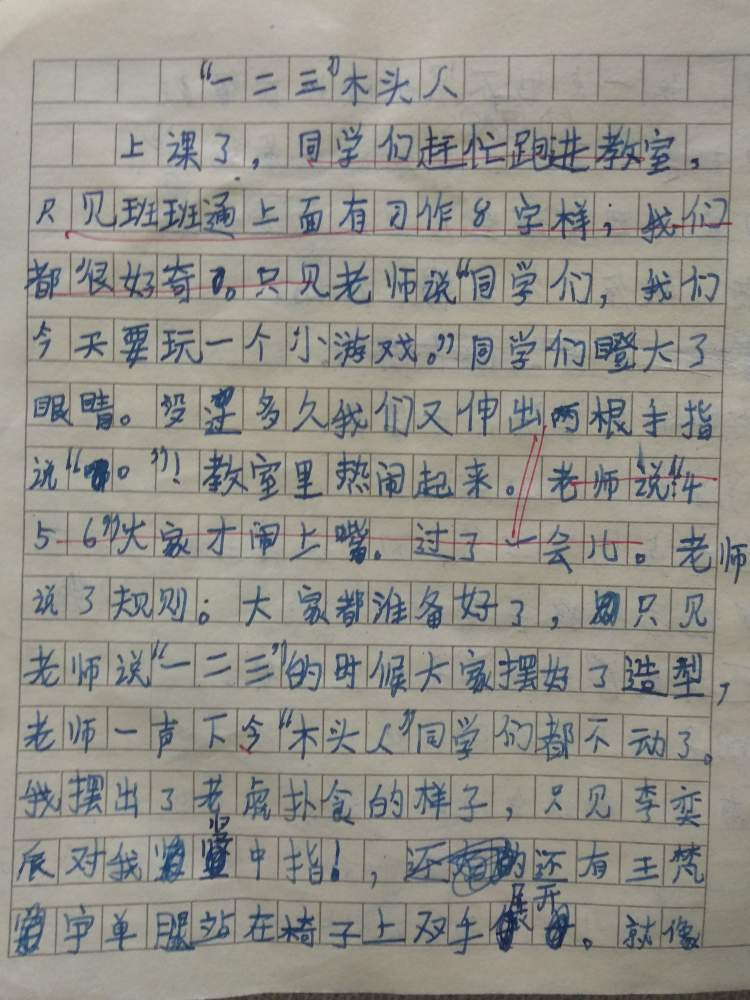 “一二三”木头人
上课了，同学们赶忙跑进教室，
只见班班通上面有习作8字样；我们
都很好奇。只见老师说“同学们，我们
今天要玩一个小游戏。”同学们瞪大了
眼睛。没过多久我们又伸出两根手指
说“。”！教室里热闹起来。老师说“4
5 6”大家才闹上嘴。过了一会儿。老师
说了规则。大家都准备好了，只见
老师说“一二三”的时候大家摆好了造型，
老师一声下令“木头人”同学们都不动了。
我摆出了老虎扑食的样子，只见李奕
辰对我竖中指！，还有王梵
宇单腿站在椅子上双手展开。就像